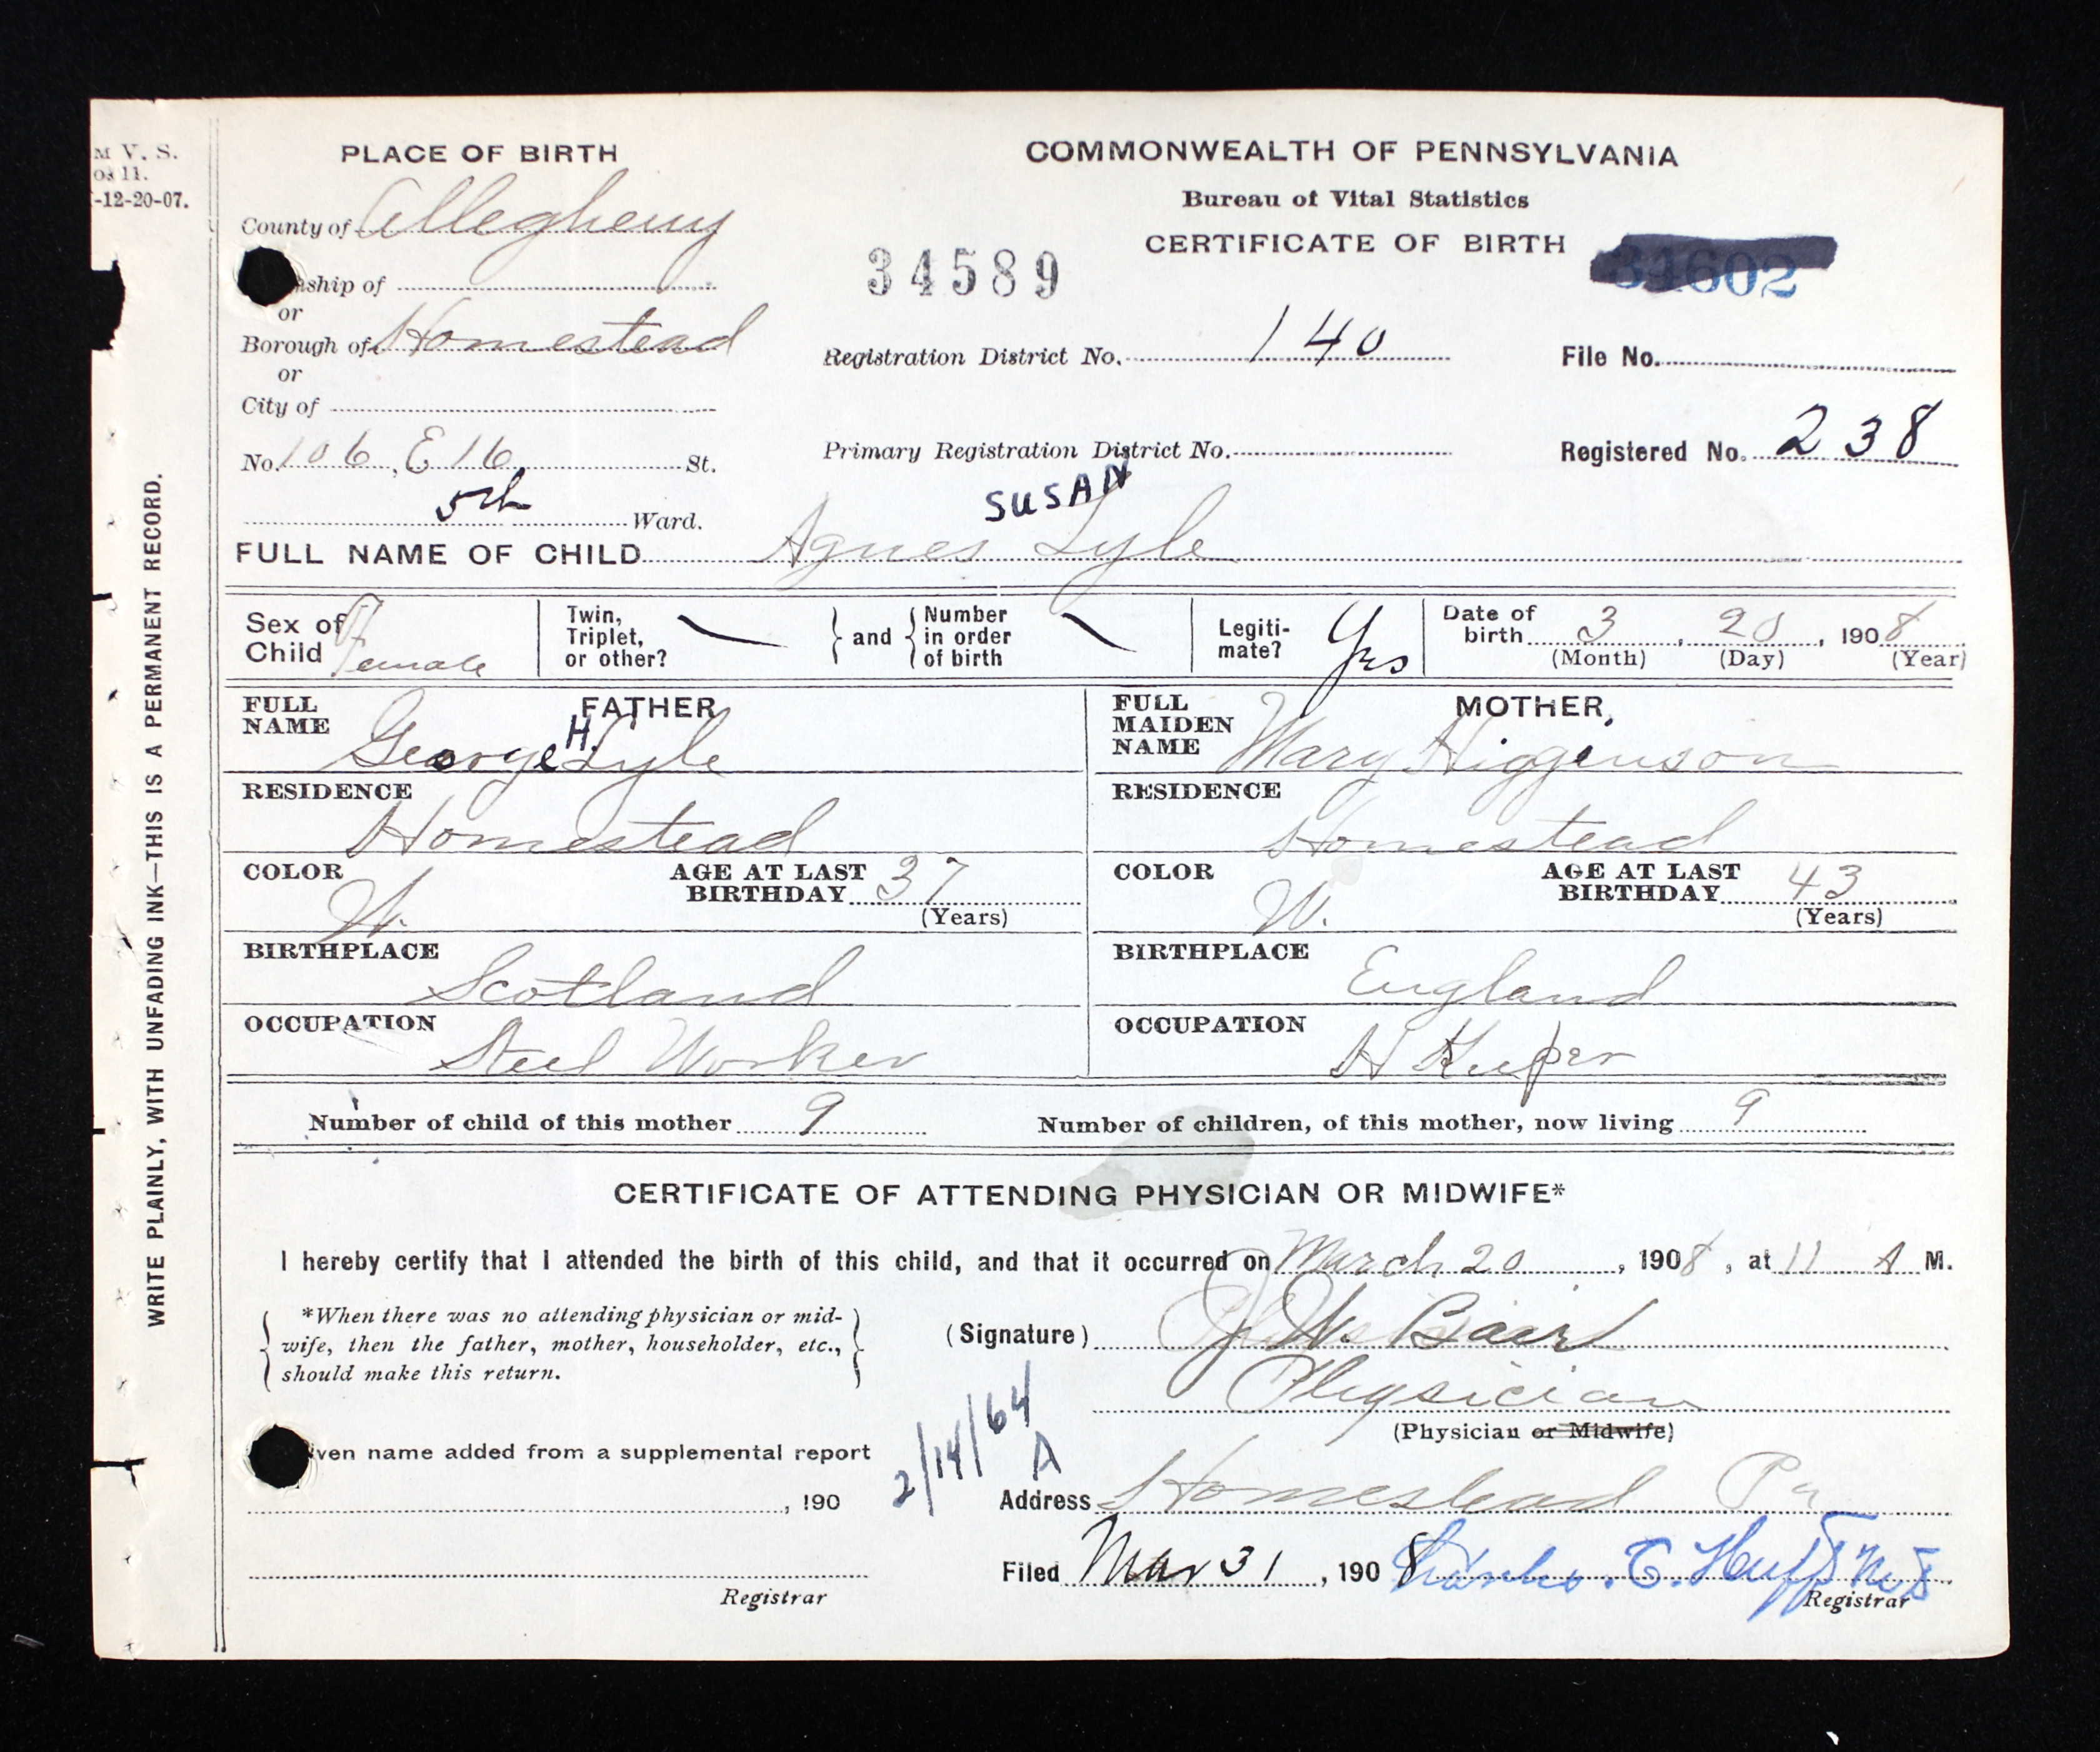 M V. S.
os 11.
-12-20-07.
WRITE PLAINLY, WITH UNFADING INK—THIS IS A PERMANENT RECORD.
PLACE OF BIRTH
COMMONWEALTH OF PENNSYLVANIA
Bureau of Vital Statistics
CERTIFICATE OF BIRTH
County of Allegheny
34589
34602
ship of
or
Borough of Homestead
Registration District No. 140
File No.
or
City of
No. 106, E 16 St.
Primary Registration District No.
Registered No. 238
5th Ward.
SUSAN
FULL NAME OF CHILD Agnes Lyle
Sex of Child Female
Twin, Triplet, or other? and Number in order of birth
Legiti-mate? Yes
Date of birth 3, 20, 1908
(Month) (Day) (Year)
FATHER
FULL NAME George H. Lyle
RESIDENCE
Homestead
COLOR W. AGE AT LAST BIRTHDAY 37
(Years)
BIRTHPLACE
Scotland
OCCUPATION
Steel Worker
MOTHER
FULL MAIDEN NAME Mary Higginson
RESIDENCE
Homestead
COLOR W. AGE AT LAST BIRTHDAY 43
(Years)
BIRTHPLACE
England
OCCUPATION
H Keeper
Number of child of this mother 9 Number of children, of this mother, now living 9
CERTIFICATE OF ATTENDING PHYSICIAN OR MIDWIFE*
I hereby certify that I attended the birth of this child, and that it occurred on March 20, 1908, at 11 A M.
*When there was no attending physician or mid-
wife, then the father, mother, householder, etc.,
should make this return.
(Signature) Bair
Physician
(Physician or Midwife)
2/14/64
A
ven name added from a supplemental report
, 190
Address Homestead Pa
Filed Mar 31, 1908 C. Huff
Registrar
Registrar